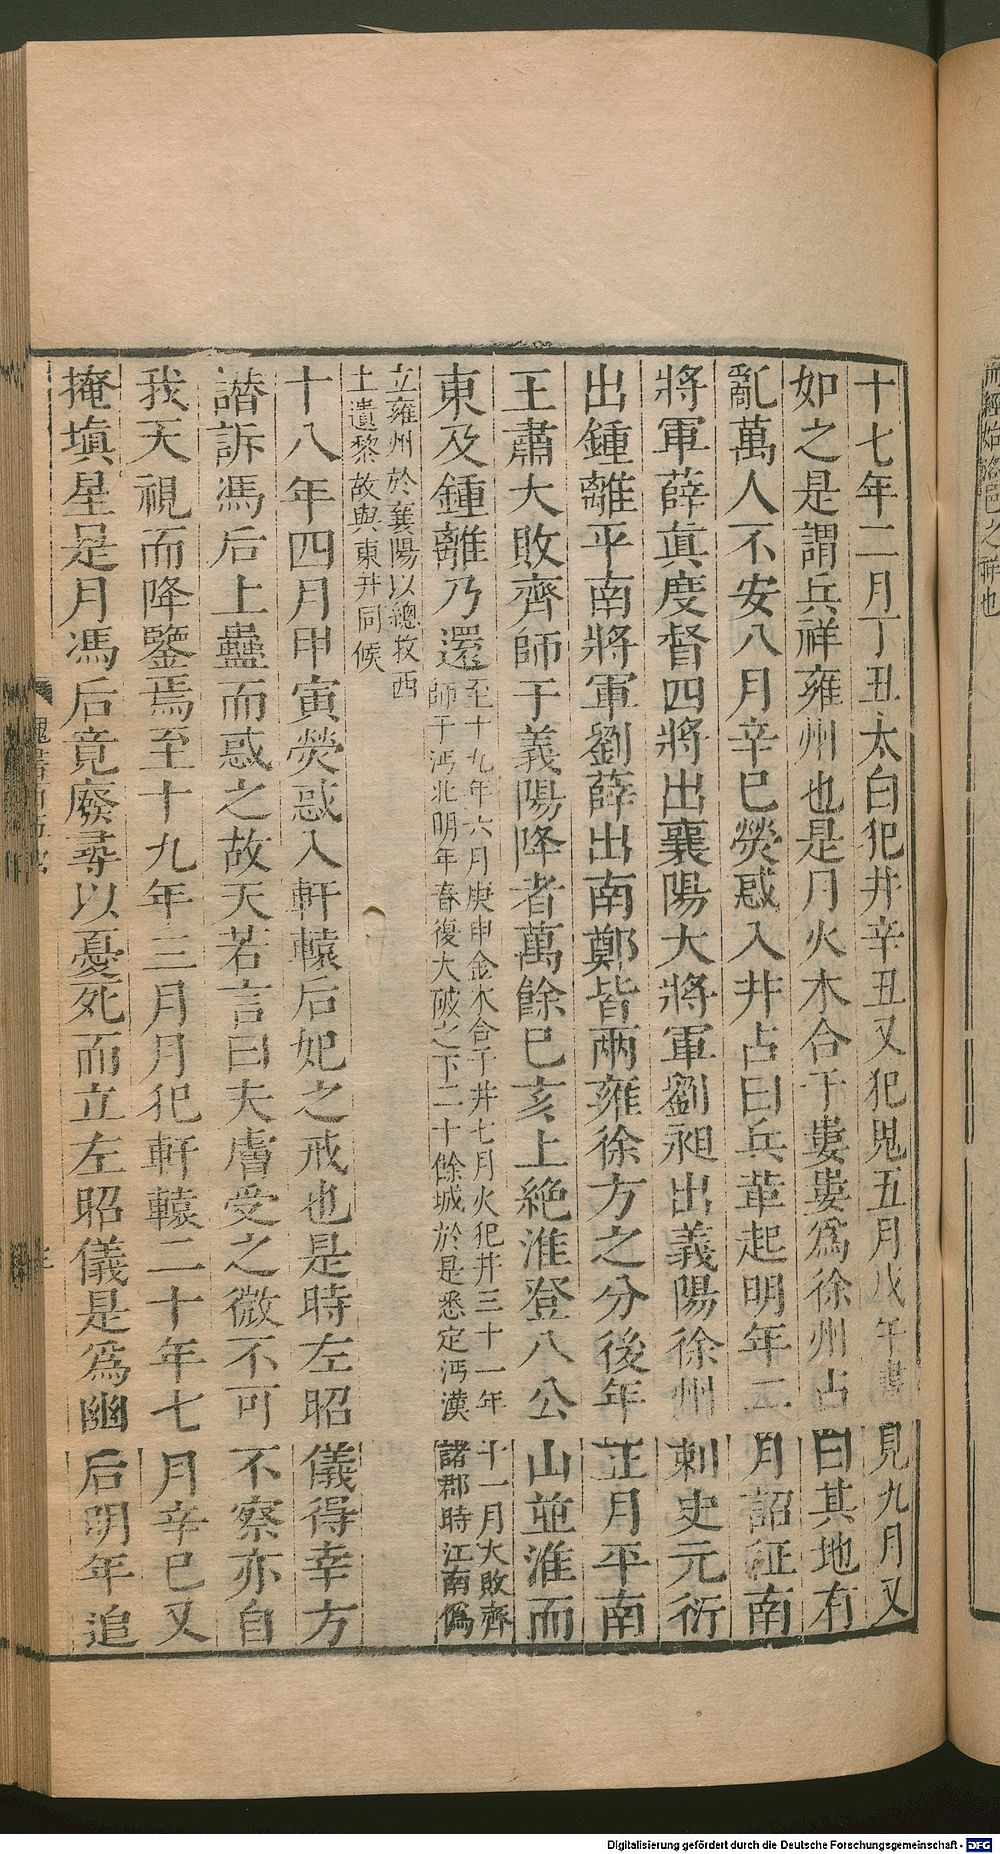 十七年二月丁丑太白犯井辛丑又犯鬼五月戊午晝見九月又
如之是謂兵祥雍州也是月火木合于婁婁爲徐州占曰其地有
亂萬人不安八月辛巳熒惑入井占曰兵革起明年二月詔征南
將軍薛眞度督四將出襄陽大將軍劉昶出義陽徐州刺史元衍
出鍾離平南將軍劉薛出南鄭皆兩雍徐方之分後年正月平南
王肅大敗齊師于義陽降者萬餘巳亥上絶淮登八公山並淮而
東及鍾離乃還
至十九年六月庚申金木合于井七月火犯井三十一年十一月大敗齊
師于沔北明年春復大破之下二十餘城於是悉定沔漢諸郡時江南僞
立雍州於襄陽以總牧西
土遺黎故與東井同候
十八年四月甲寅熒惑入軒轅后妃之戒也是時左昭儀得幸方
譖訴馮后上蠱而惑之故天若言曰夫膚受之微不可不察亦自
我天視而降鑒焉至十九年三月月犯軒轅二十年七月辛巳又
掩塡星是月馮后竟廢尋以憂死而立左昭儀是爲幽后明年追
之祥也
Digitalisierung gefördert durch die Deutsche Forschungsgemeinschaft - DFG